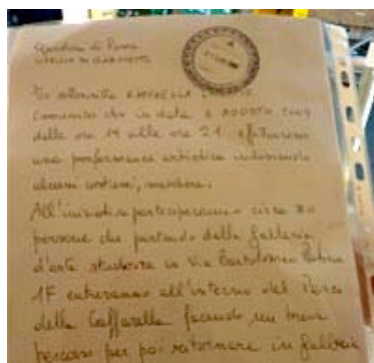 Questura di Roma
UFFICIO DI GABINETTO
Io sottoscritta RAFFAELLA
Comunico che in data 2 AGOSTO 2009
dalle ore 19 alle ore 21 effettueremo
una performance artistica indossando
alcuni costumi, maschere.
All'iniziativa parteciperanno circa
persone che partendo dalla galleria
d'arte studioria in Via Bartolomeo Platina
1F entreranno all'interno del Parco
della Caffarella facendo un breve
percorso per poi ritornare in galleria